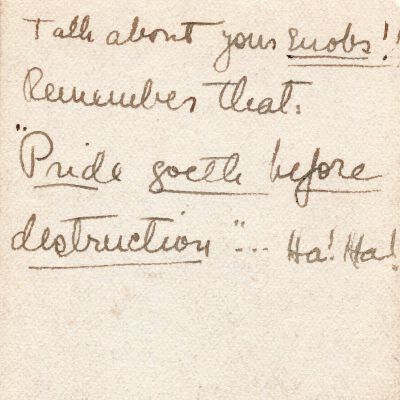 Talk about your Snobs!!
Remember that:
"Pride goeth before
destruction"... Ha! Ha!